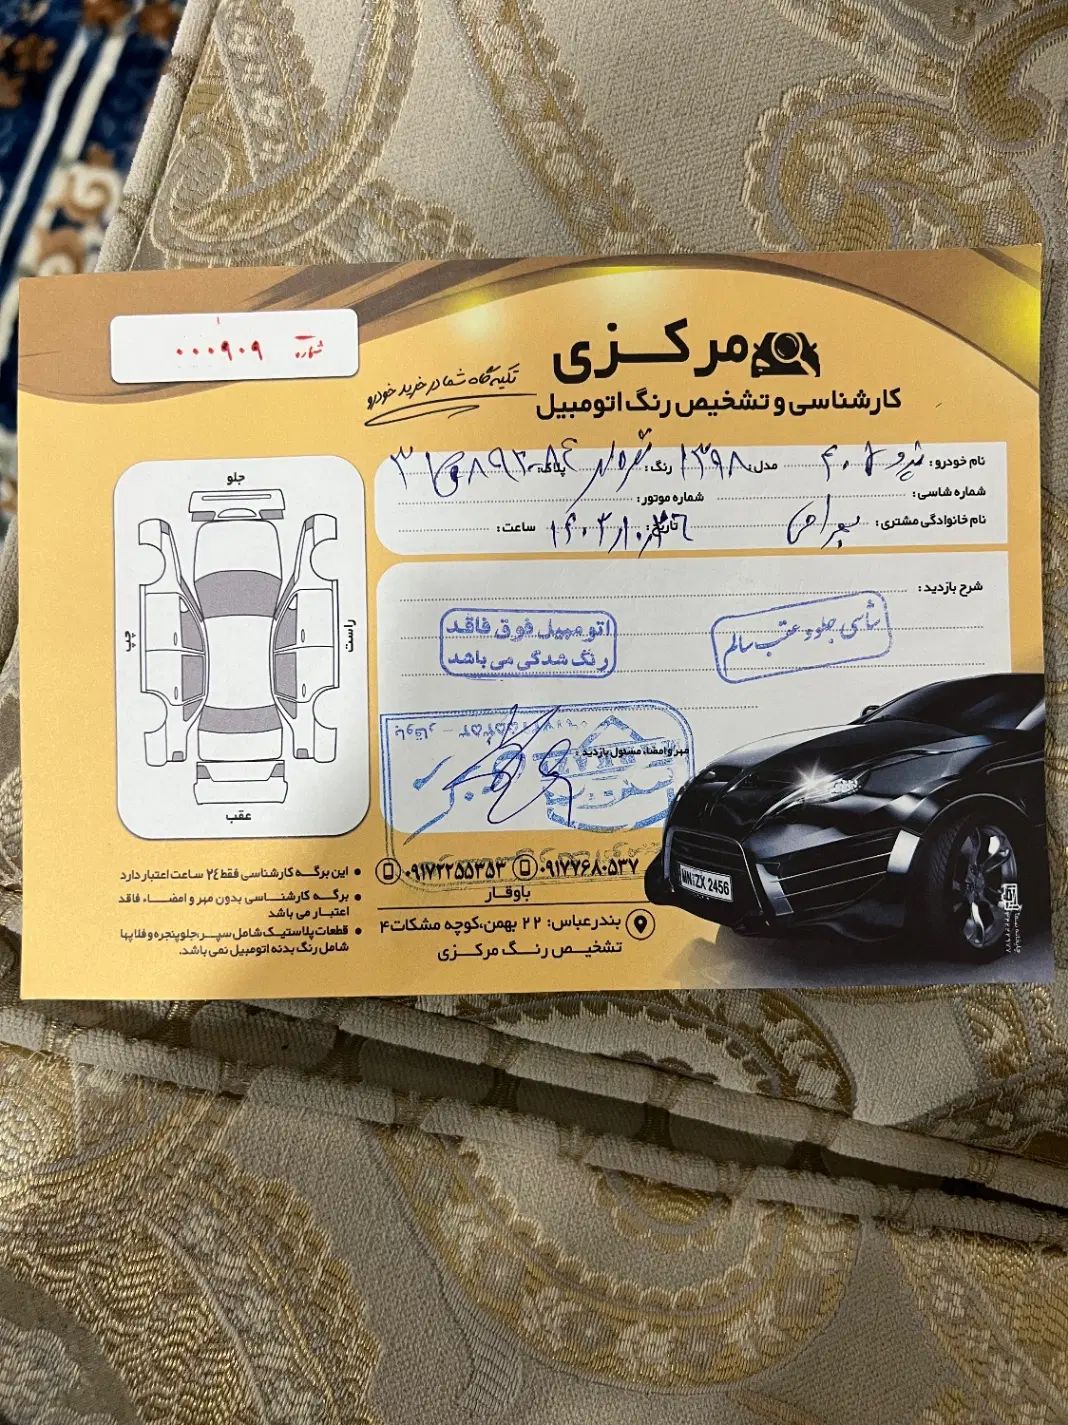 شماره ۰۰۰۹۰۹
مرکزی
کارشناسی و تشخیص رنگ اتومبیل
تکیه گاه شما در خرید خودرو
نام خودرو: پژو مدل: ۱۳۹۸ رنگ: پلاک:
شماره شاسی: شماره موتور:
نام خانوادگی مشتری: تاریخ: ساعت:
شرح بازدید:
شاسی جلو و عقب سالم
اتومبیل فوق فاقد
رنگ شدگی می باشد
مهر و امضاء مسئول بازدید:
جلو
چپ
راست
عقب
این برگه کارشناسی فقط ۲۴ ساعت اعتبار دارد
برگه کارشناسی بدون مهر و امضاء فاقد
اعتبار می باشد
قطعات پلاستیک شامل سپر، جلوپنجره و فلاپها
شامل رنگ بدنه اتومبیل نمی باشد.
۰۹۱۷۷۶۸۰۵۳۷ ۰۹۱۷۲۲۵۵۳۵۳
باوقار
بندرعباس: ۲۲ بهمن، کوچه مشکات ۴
تشخیص رنگ مرکزی
WN:ZX 2456